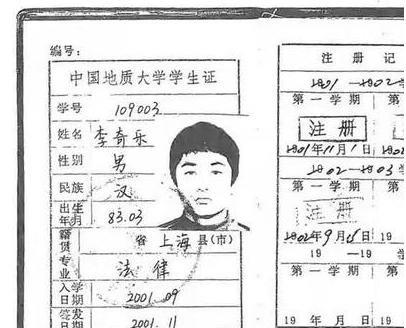 编号:
中国地质大学学生证
学号 109003
姓名 李奇乐
性别 男
民族 汉
出生年月 83.03
籍贯 省 上海 县(市)
专业 法律
入学日期 2001.09
签发日期 2001.11
注 册 记
1901—1902学
第一学期 第
注册
1901年11月1日 190
1902—1903学
第一学期 第
注册
1902年9月15日 19
19 —19 学
第一学期 第
19 年 月 日 19